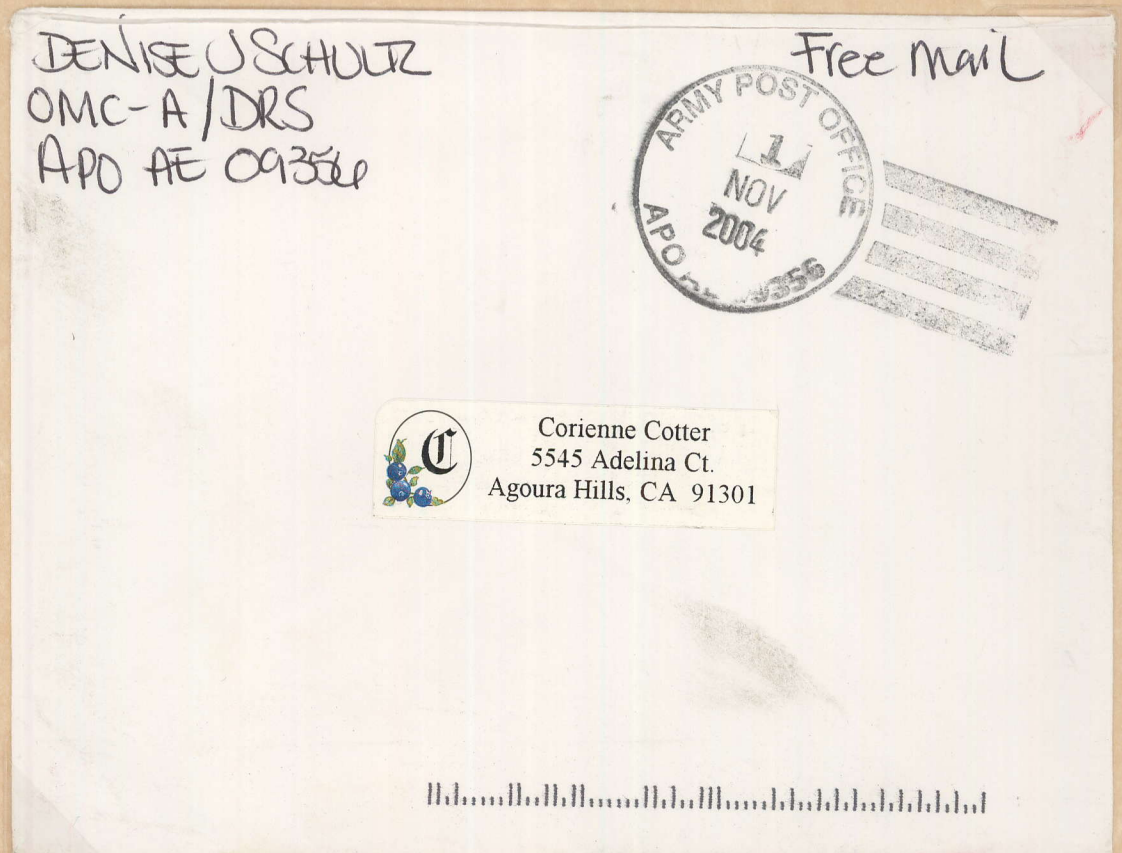 DENISE J SCHULTZ
OMC-A/DRS
APO AE 09356
Free Mail
ARMY POST OFFICE
1
NOV
2004
APO 9356
C
Corienne Cotter
5545 Adelina Ct.
Agoura Hills, CA 91301